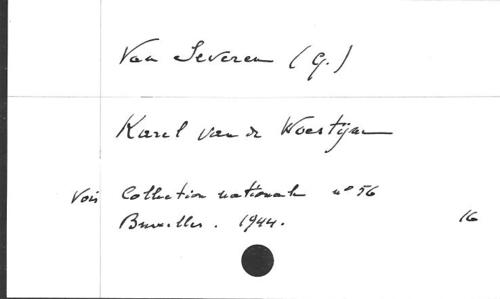 Van Severen (G.)
Karel van de Woestijne
Voir Collection nationale n° 56
Bruxelles. 1944. 16